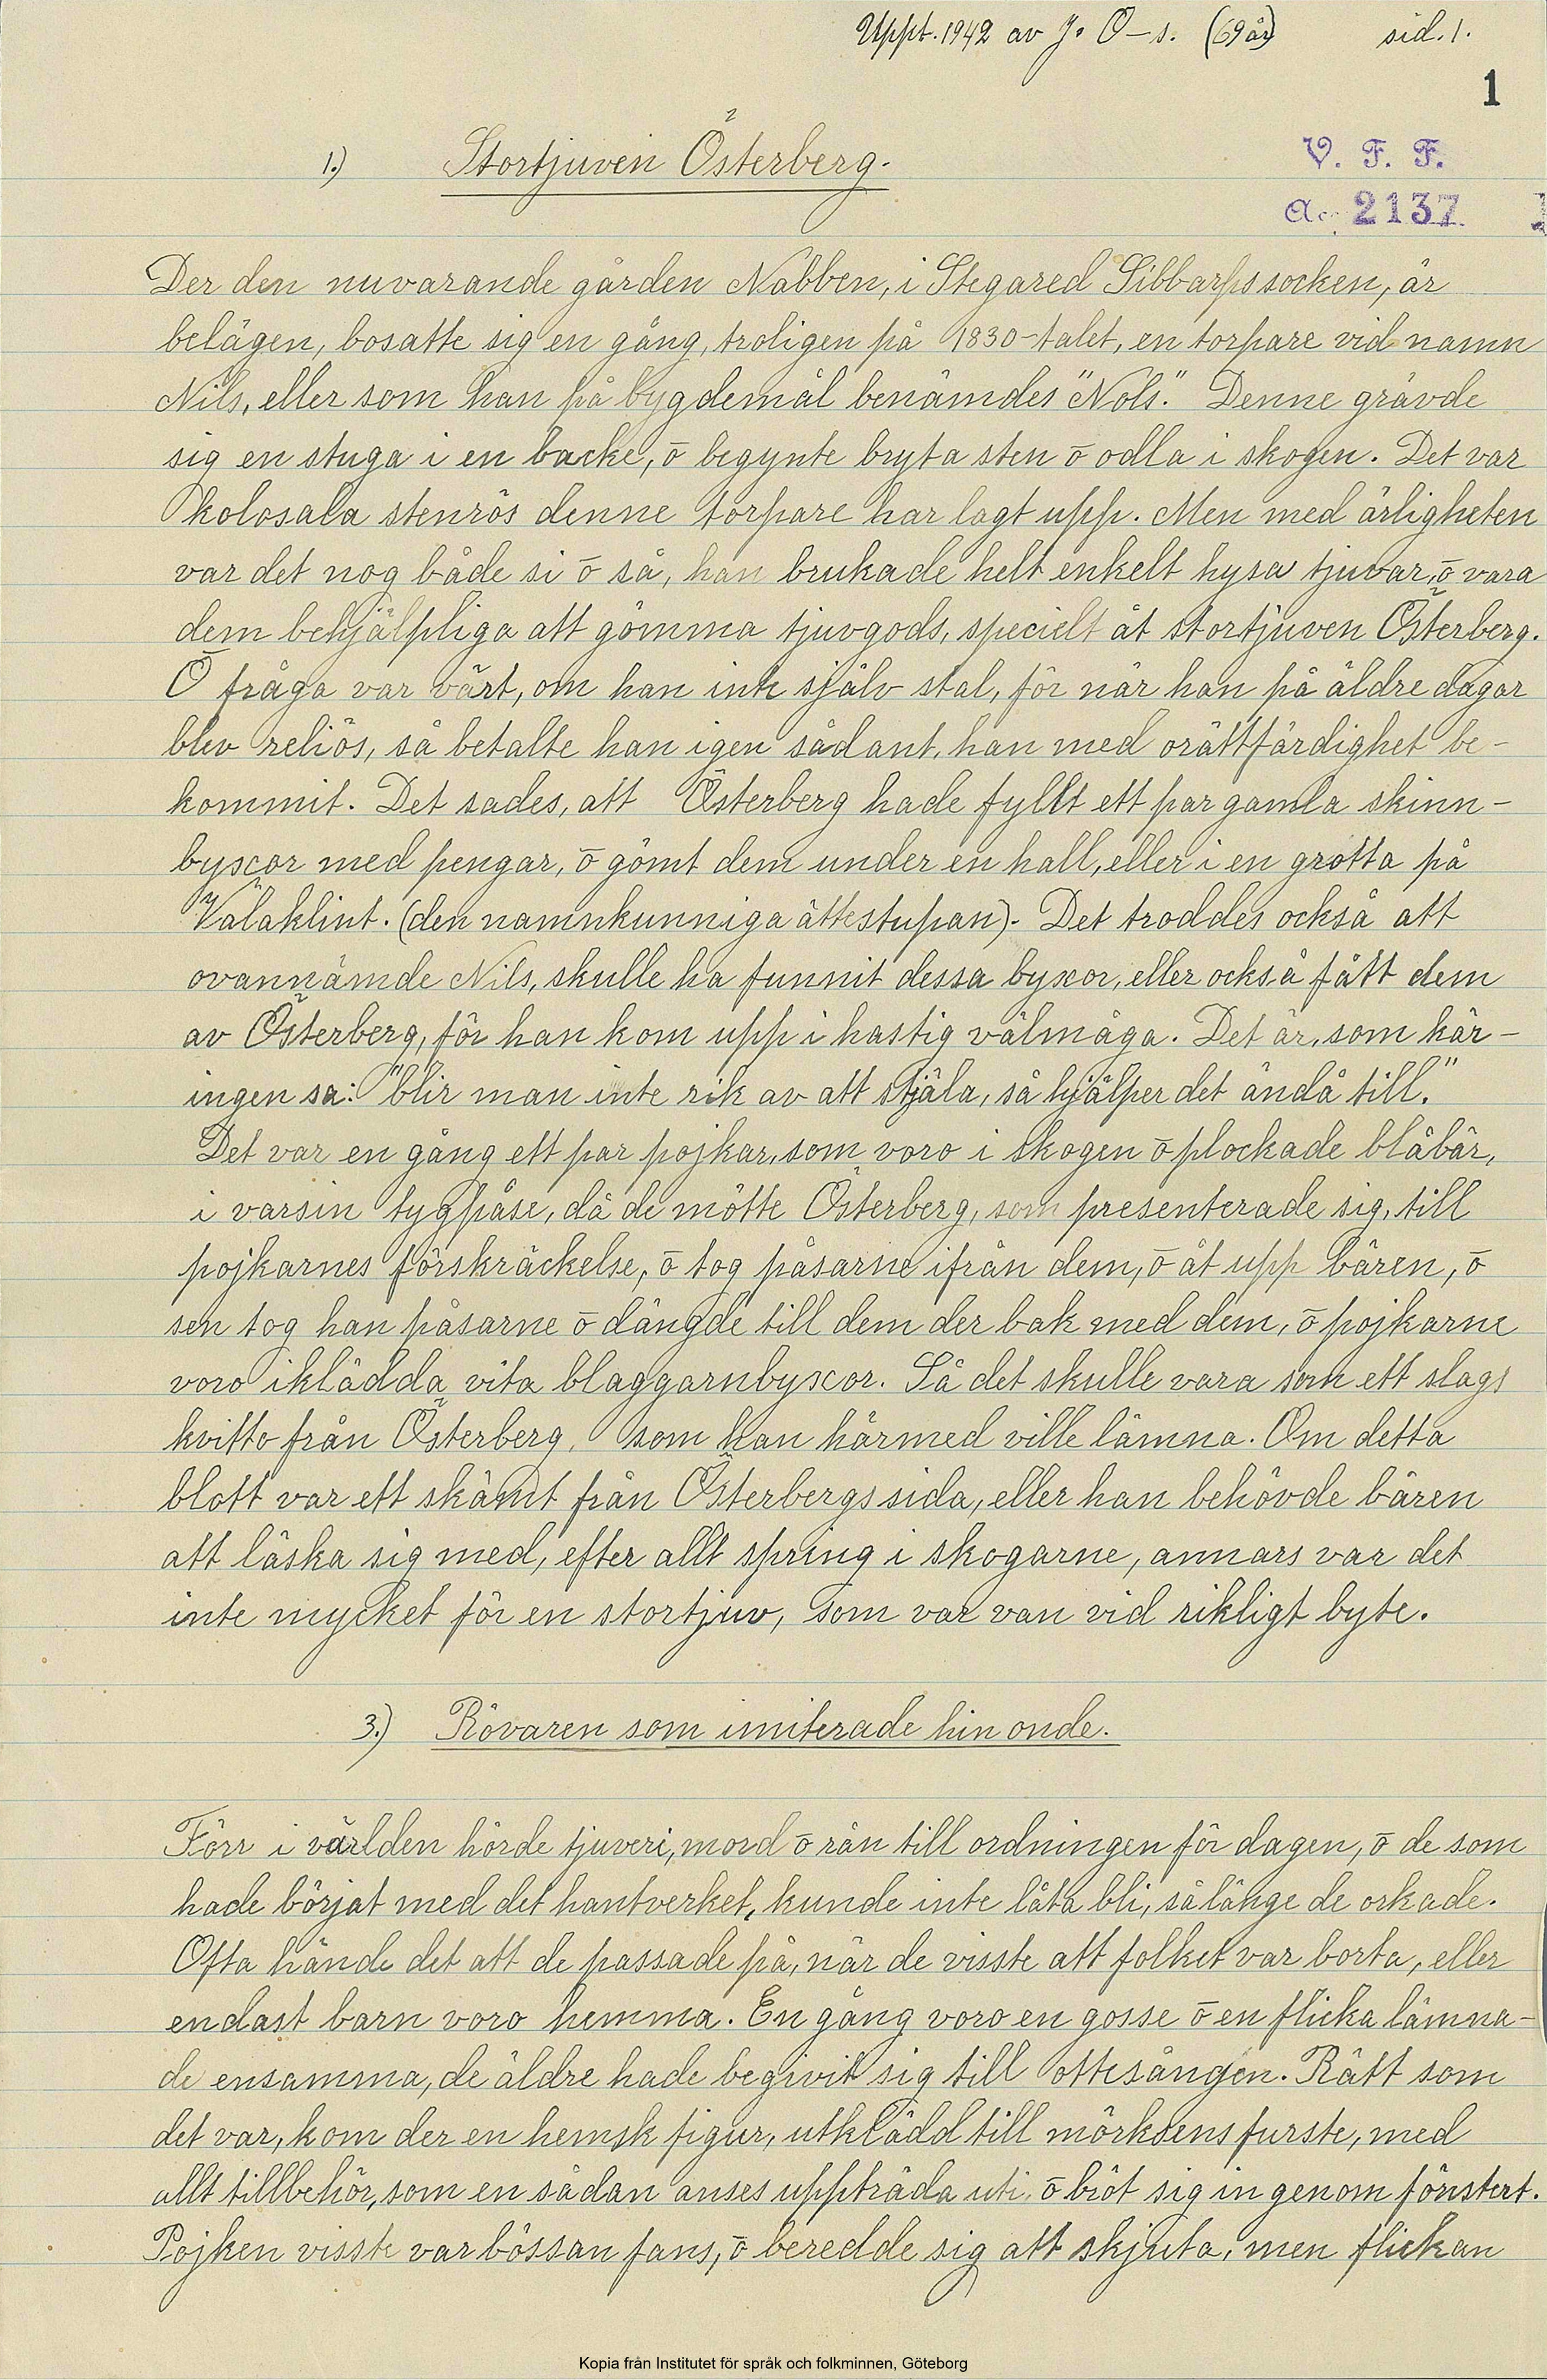 Uppt. 1942 av J. O-s. (69 år) sid. 1.
1
1.) Stortjuven Österberg.
V. F. F.
Ac. 2137
Der den nuvarande gården Nabben, i Stegared Sibbarpssocken, är
belägen, bosatte sig en gång, troligen på 1830-talet, en torpare vid namn
Nils, eller som han på bygdemål benämdes "Nols". Denne grävde
sig en stuga i en backe, ō begynte bryta sten ō odla i skogen. Det var
kolosala stenrös denne torpare har lagt upp. Men med ärligheten
var det nog både si ō så, han brukade helt enkelt hysa tjuvar, ō vara
dem behjälpliga att gömma tjuvgods, specielt åt stortjuven Österberg.
Ō fråga var värt, om han inte själv stal, för när han på äldre dagar
blev reliös, så betalte han igen sådant, han med orättfärdighet be-
kommit. Det sades, att Österberg hade fyllt ett par gamla skinn-
byxor med pengar, ō gömt dem under en hall, eller i en grotta på
Valaklint. (den namnkunniga ättestupan). Det troddes också att
ovannämde Nils, skulle ha funnit dessa byxor, eller också fått dem
av Österberg, för han kom upp i hastig välmåga. Det är, som kär-
ingen sa: "blir man inte rik av att stjäla, så hjälper det ändå till."
Det var en gång ett par pojkar, som voro i skogen ō plockade blåbär,
i varsin tygpåse, då de mötte Österberg, som presenterade sig, till
pojkarnes förskräckelse, ō tog påsarne ifrån dem, ō åt upp bären, ō
sen tog han påsarne ō dängde till dem der bak med dem, ō pojkarne
voro iklädda vita blaggarnbyxor. Så det skulle vara som ett slags
kvitto från Österberg, som han härmed ville lämna. Om detta
blott var ett skämt från Österbergs sida, eller han behövde bären
att läska sig med, efter allt spring i skogarne, annars var det
inte mycket för en stortjuv, som var van vid rikligt byte.
3.) Rövaren som imiterade hin onde.
Förr i världen hörde tjuveri, mord ō rån till ordningen för dagen, ō de som
hade börjat med det hantverket, kunde inte låta bli, så länge de orkade.
Ofta hände det att de passade på, när de visste att folket var borta, eller
endast barn voro hemma. En gång voro en gosse ō en flicka lämna-
de ensamma, de äldre hade begivit sig till ottesången. Rätt som
det var, kom der en hemsk figur, utklädd till mörksens furste, med
allt tillbehör, som en sådan anses uppträda uti, ō bröt sig in genom fönstert.
Pojken visste var bössan fans, ō beredde sig att skjuta, men flickan
Kopia från Institutet för språk och folkminnen, Göteborg